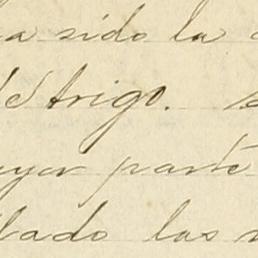 a sido la
trigo.
yor parte
lado las